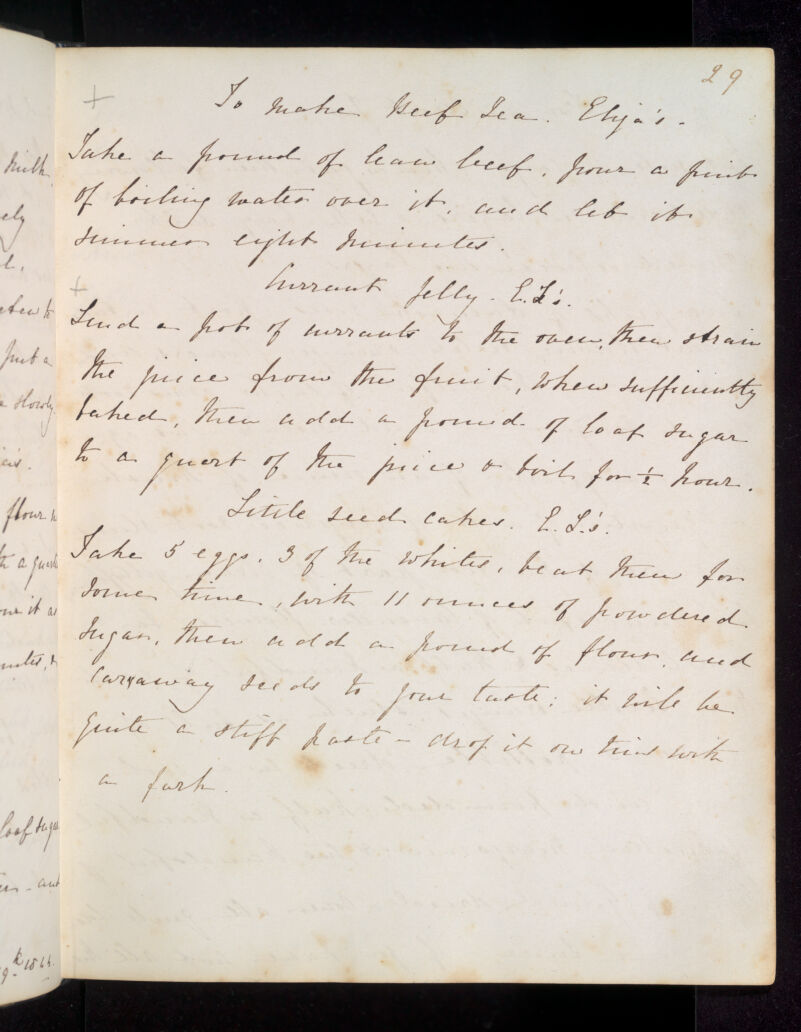 29
+ To make Beef Tea. Eliza's.
Take a pound of lean beef, pour a pint
of boiling water over it, and let it
simmer eight minutes.
+ Currant Jelly. E.L's.
Send a pot of currants to the oven, then strain
the juice from the fruit, when sufficiently
baked, then add a pound of loaf sugar
to a quart of the juice & boil for ½ hour.
Little seed cakes. E.L's.
Take 5 eggs, 3 of the whites, beat them for
some time, with 11 ounces of powdered
sugar, then add a pound of flour, and
carraway seeds to your taste; it will be
quite a stiff paste - drop it on tins with
a fork.
milk
ely
put a
slowly
flour
one it as
loaf sugar